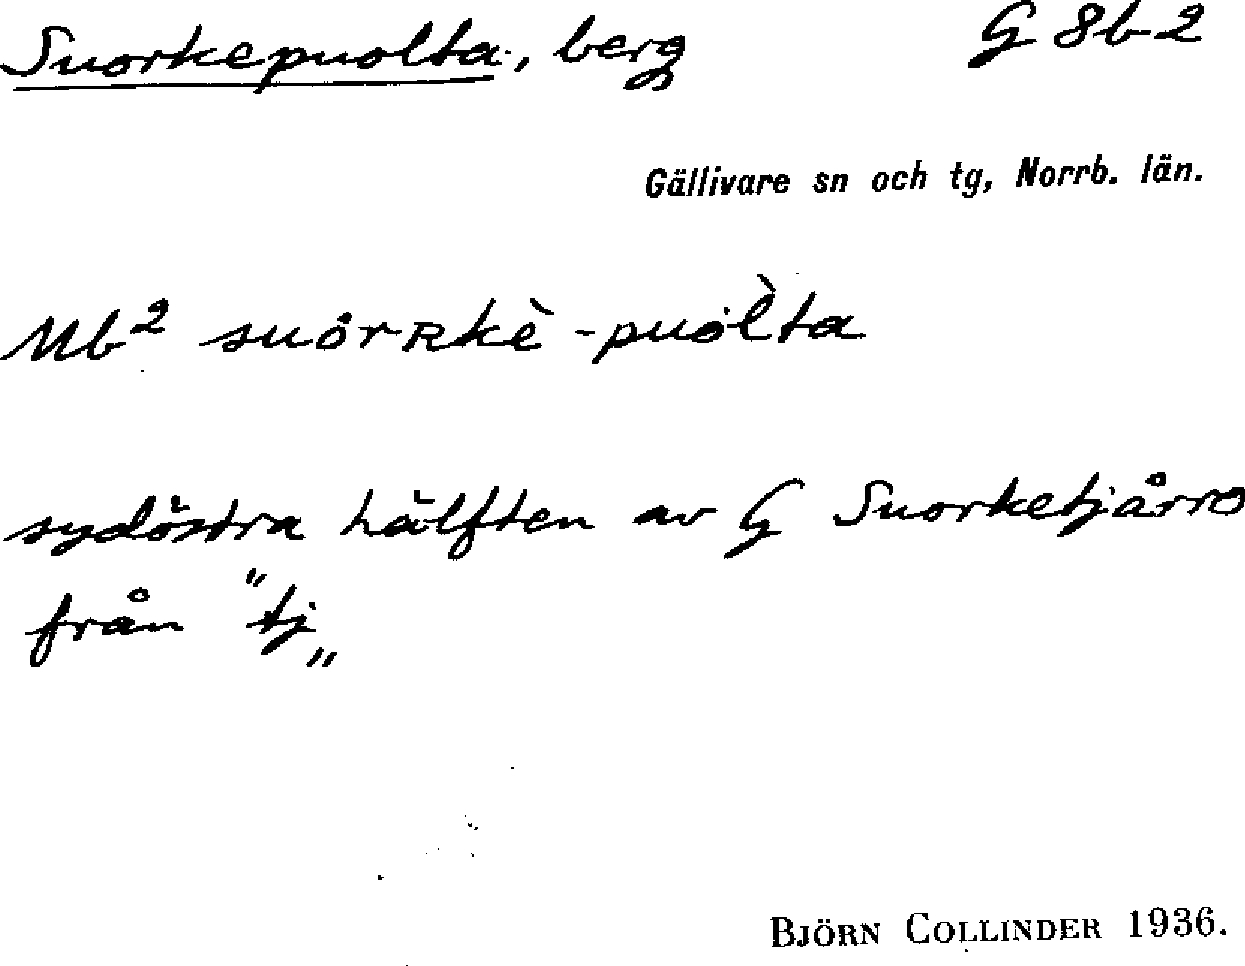 Suorkepuolta, berg G 8b2
Gällivare sn och tg, Norrb. län.
Mb² suȯrʀkè -puȯl̀ta
sydöstra hälften av G Suorketjårro
från "tj"
BJÖRN COLLINDER 1936.